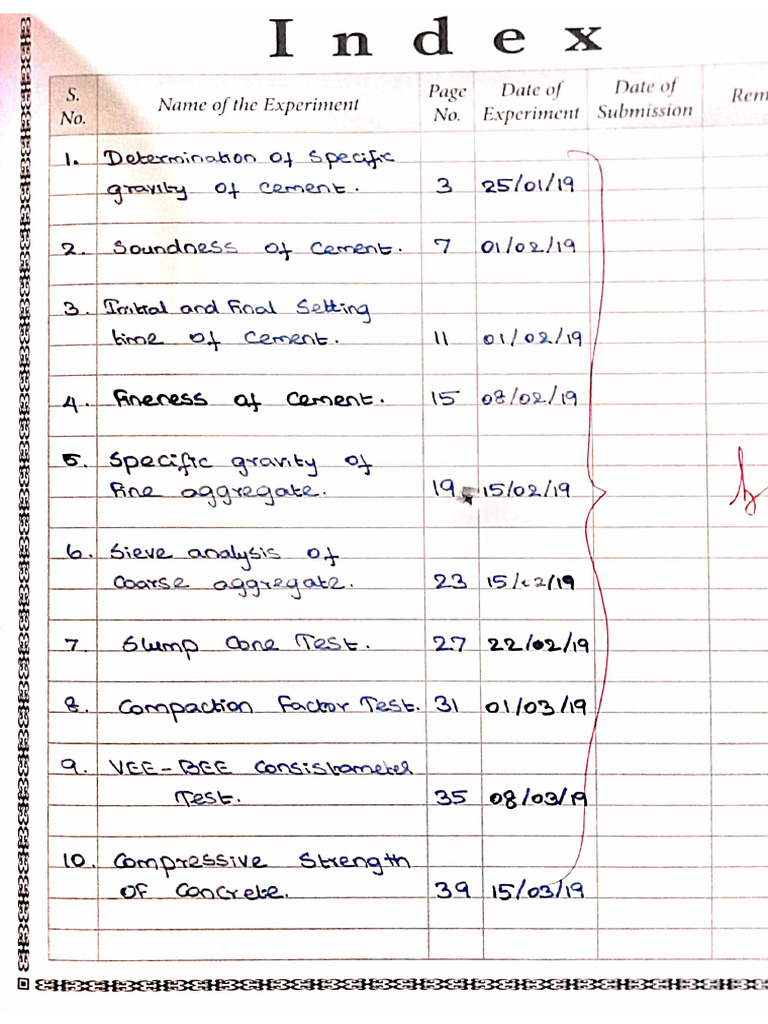 Index
S. No. Name of the Experiment Page No. Date of Experiment Date of Submission Rem
1. Determination of specific
gravity of cement. 3 25/01/19
2. Soundness of cement. 7 01/02/19
3. Initial and final setting
time of cement. 11 01/02/19
4. fineness of cement. 15 08/02/19
5. Specific gravity of
fine aggregate. 19 15/02/19
6. Sieve analysis of
coarse aggregate. 23 15/02/19
7. Slump Cone Test. 27 22/02/19
8. Compaction Factor Test. 31 01/03/19
9. VEE-BEE Consistometer
Test. 35 08/03/19
10. Compressive Strength
of Concrete. 39 15/03/19